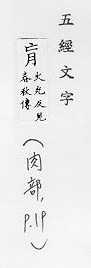 五經文字
肓 火光反見
春秋傳
(肉部, P.19)